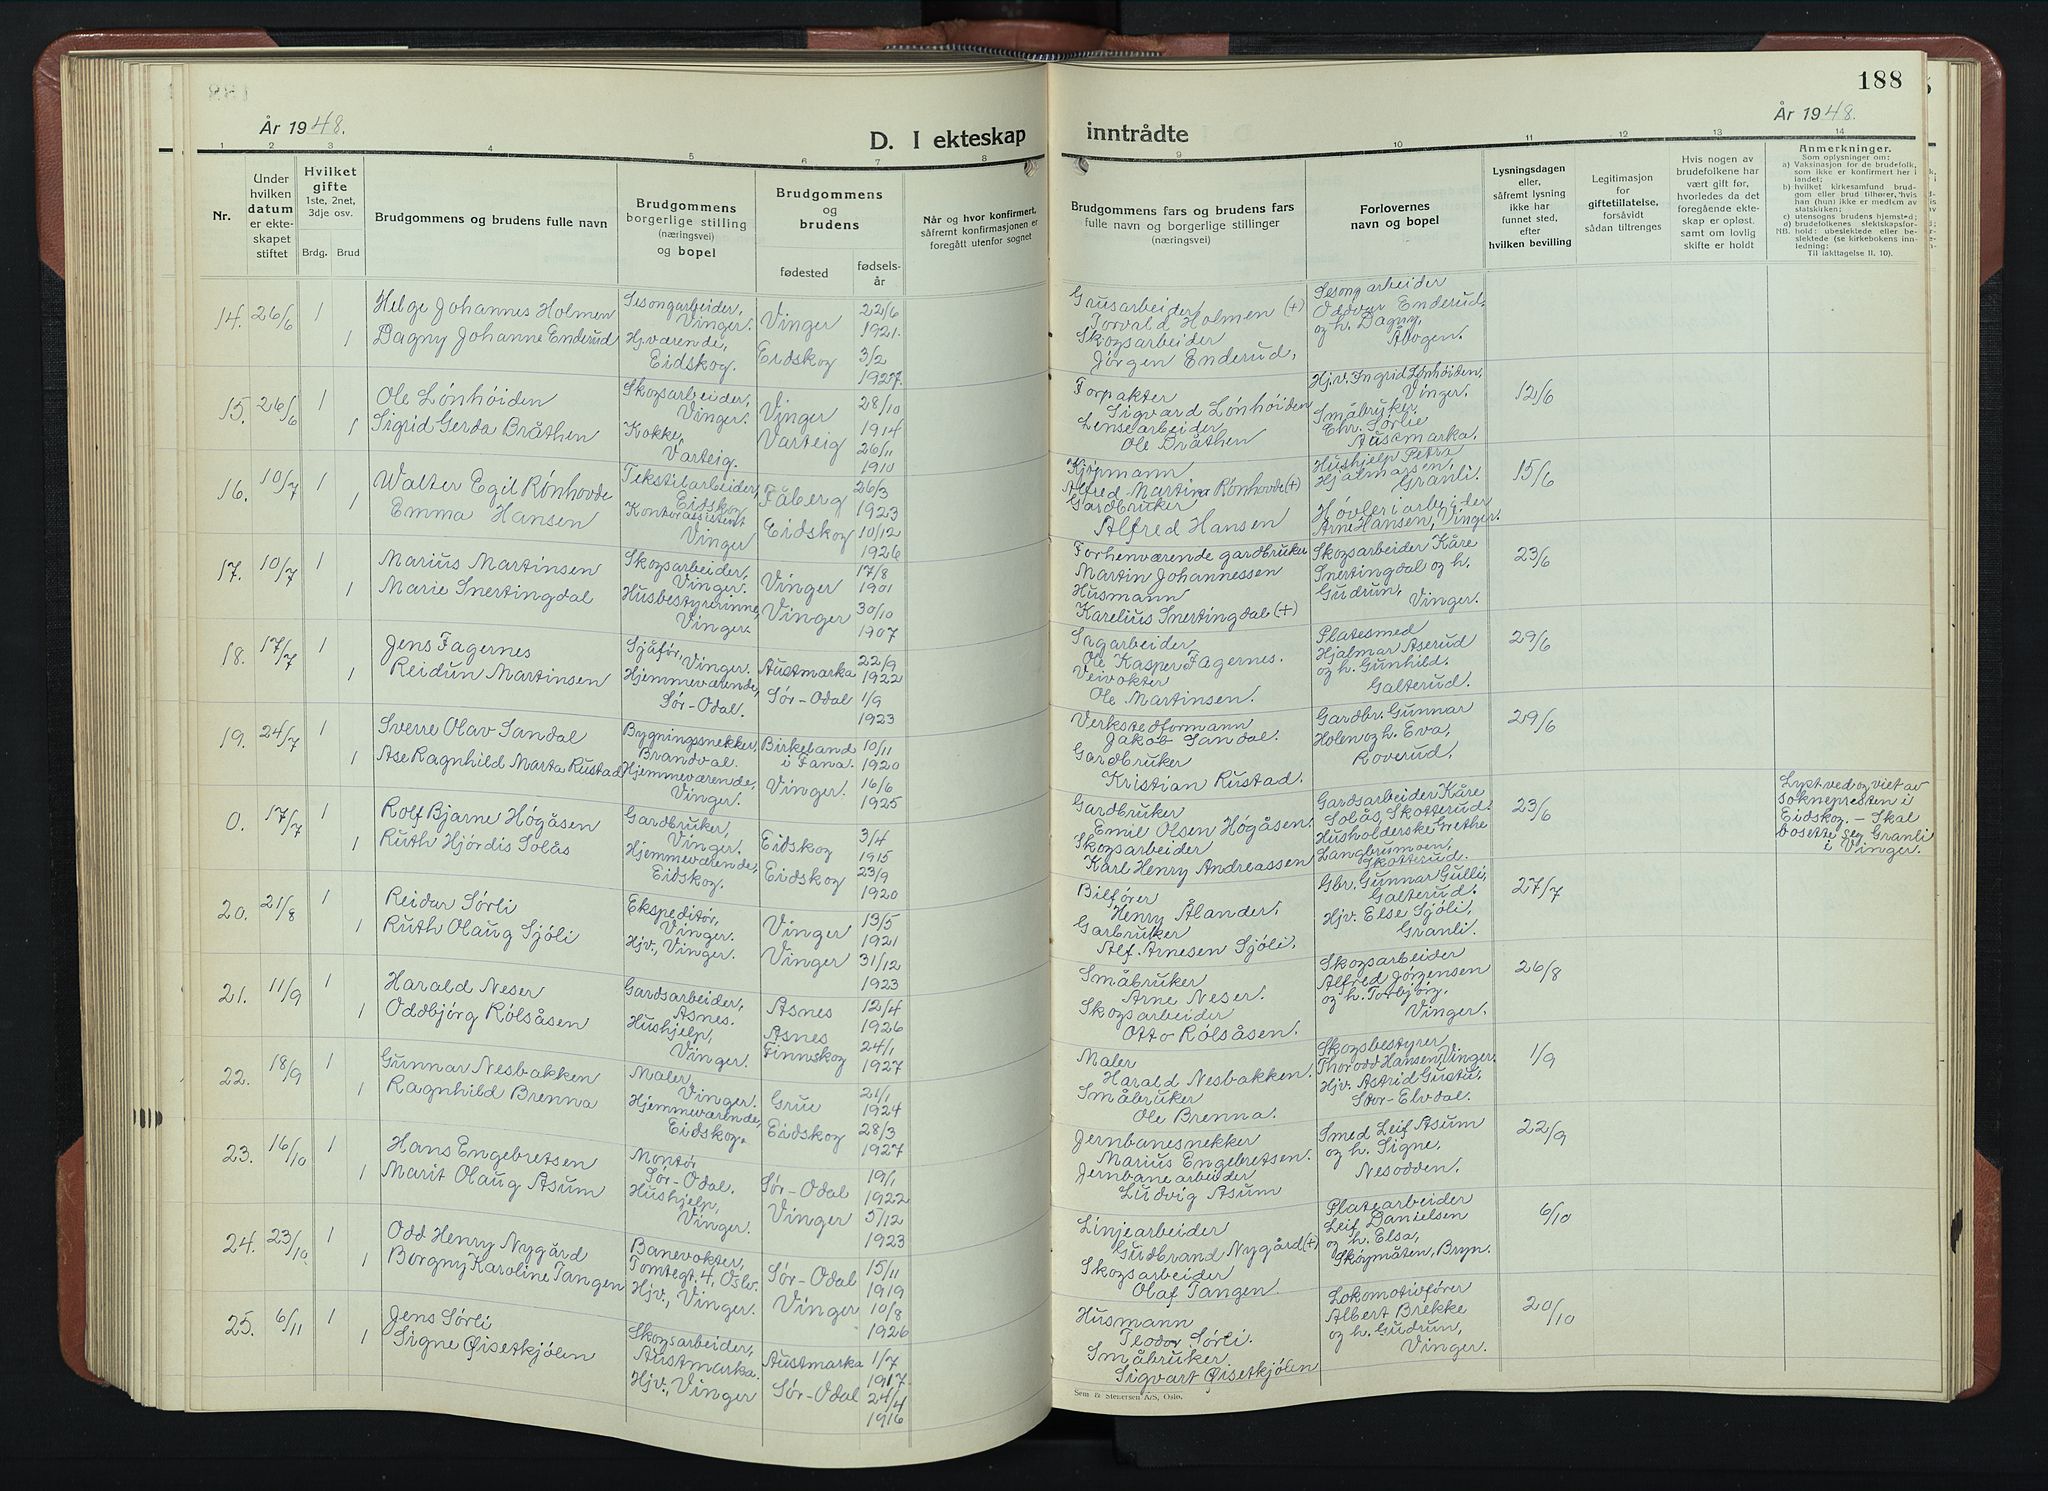 188
År 1948.
År 1948.
D. I ekteskap inntrådte
1 2 3 4 5 6 7 8 9 10 11 12 13 14
Nr.
Under hvilken datum er ekteskapet stiftet
Hvilket gifte 1ste, 2net, 3dje osv.
Brdg. Brud
Brudgommens og brudens fulle navn
Brudgommens borgerlige stilling (næringsvei) og bopel
Brudgommens og brudens
fødested
fødselsår
Når og hvor konfirmert, såfremt konfirmasjonen er foregått utenfor sognet
Brudgommens fars og brudens fars fulle navn og borgerlige stillinger (næringsvei)
Forlovernes navn og bopel
Lysningsdagen eller, såfremt lysning ikke har funnet sted, efter hvilken bevilling
Legitimasjon for giftetillatelse, forsåvidt sådan tiltrenges
Hvis nogen av brudefolkene har vært gift før, hvorledes da det foregående ekteskap er opløst, samt om lovlig skifte er holdt
Anmerkninger.
Som oplysninger om:
a) Vaksinasjon for de brudefolk, som ikke er konfirmert her i landet;
b) hvilket kirkesamfund brudgom eller brud tilhører, hvis han (hun) ikke er medlem av statskirken;
c) utensogns brudens hjemsted;
d) brudefolkenes slektskapsforhold: ubeslektede eller beslektede (se kirkebokens innledning:
Til iakttagelse II. 10).
14. 26/6 1 Helge Johannes Holmen Sesongarbeider, Vinger. Vinger 22/6 1921. Grusarbeider Torvald Holmen (+) Sesongarbeider Oddvar Enderud, og h. Dagny, Åbogen.
1 Dagny Johanne Enderud Hj.værende, Eidskog. Eidskog 3/2 1927. Skogsarbeider Jørgen Enderud,
15. 26/6 1 Ole Lønhøiden Skogsarbeider, Vinger. Vinger 28/10 1914 Forpakter Sigvard Lønhøiden Hj.v. Ingrid Lønhøiden, Vinger. 12/6
1 Sigrid Gerda Bråthen Kokke, Varteig. Varteig 26/11 1910 Lensearbeider Ole Bråthen Småbruker. Chr. Sørlie Austmarka.
16. 10/7 1 Walter Egil Rønhovde Tekstilarbeider, Eidskog Fåberg 26/3 1923 Kjøpmann Alfred Martin Rønhovde (+) Hushjelp Petra Hjalmarsen, Granli. 15/6
1 Emma Hansen Kontorassistent Vinger Eidskog 10/12 1926 Gardbruker Alfred Hansen Høvleriarbeider Arne Hansen, Vinger.
17. 10/7 1 Marius Martinsen Skogsarbeider, Vinger. Vinger 17/8 1901 Forhenværende gardbruker Martin Johannessen Skogsarbeider Kåre Snertingdal og h. Gudrun, Vinger. 23/6
1 Marie Snertingdal Husbestyrerinne, Vinger. Vinger 30/10 1907 Husmann Karelius Snertingdal (+)
18. 17/7 1 Jens Fagernes Sjåfør, Vinger. Austmarka 22/9 1922 Sagarbeider Ole Kasper Fagernes. Platesmed Hjalmar Åserud og h. Gunhild. Galterud. 29/6
1 Reidun Martinsen Hjemmeværende, Sør-Odal. Sør-Odal 1/9 1923 Veivokter Ole Martinsen.
19. 24/7 1 Sverre Olav Sandal Bygningssnekker, Brandval. Birkeland i Fana. 10/11 1920 Verkstedformann Jakob Sandal. Gardbr. Gunnar Holen og h. Eva, Roverud. 29/6
1 Åse Ragnhild Marta Rustad Hjemmeværende, Vinger. Vinger. 16/6 1925 Gardbruker Kristian Rustad.
0. 17/7 1 Rolf Bjarne Høgåsen Gardbruker, Vinger. Eidskog 3/4 1915 Gardbruker Emil Olsen Høgåsen. Gardsarbeider Kåre Solås, Skotterud. 23/6 Lyst ved og viet av soknepresten i Eidskog. – Skal bosette seg Granli i Vinger.
1 Ruth Hjørdis Solås Hjemmeværende, Eidskog. Eidskog 23/9 1920 Skogsarbeider Karl Henry Andreassen Husholderske Grethe Langbrumoen, Skotterud.
20. 21/8 1 Reidar Sørli Ekspeditør, Vinger. Vinger 13/5 1921 Bilfører Henry Ålander, Gbr. Gunnar Gulli, Galterud. 27/7
1 Ruth Olaug Sjøli Hjv., Vinger. Vinger 31/12 1923 Garbruker Alf. Arnesen Sjøli. Hjv. Else Sjøli, Granli.
21. 11/9 1 Harald Neser Gardsarbeider, Åsnes. Åsnes 12/4 1926 Småbruker Arne Neser. Skogsarbeider Alfred Jørgensen og h. Torbjørg, Vinger. 26/8
1 Oddbjørg Rølsåsen Hushjelp, Vinger. Åsnes Finnskog 24/1 1927 Skogsarbeider Otto Rølsåsen.
22. 18/9 1 Gunnar Nesbakken Maler, Vinger. Grue 21/1 1924 Maler Harald Nesbakken. Skogsbestyrer Thorodd Hansen, Vinger. 1/9
1 Ragnhild Brenna Hjemmeværende, Eidskog. Eidskog 28/3 1927 Småbruker Ole Brenna. Hjv. Astrid Gustu, Stor-Elvdal.
23. 16/10 1 Hans Engebretsen Montør Sør-Odal. Sør-Odal 19/1 1922 Jernbanesnekker Marius Engebretsen. Smed Leif Åsum og h. Signe, Nesodden. 22/9
1 Marit Olaug Åsum Hushjelp, Vinger. Vinger 5/12 1923 Jernbanearbeider Ludvig Åsum
24. 23/10. 1 Odd Henry Nygård Banevokter, Tomtegt. 4, Oslo. Sør-Odal 15/11 1919 Linjearbeider Gudbrand Nygård (+) Platearbeider Leif Danielsen og h. Elsa, Bryn. 6/10
1 Borgny Karoline Tangen Hjv., Vinger. Vinger 10/8 1926 Skogsarbeider Olaf Tangen.
25. 6/11 1 Jens Sørli Skogsarbeider, Austmarka. Austmarka 1/7 1917. Husmann Teodor Sørli. Lokomotivfører Albert Brekke og h. Gudrun, Vinger. 20/10
1 Signe Øisetkjølen Hjv., Vinger Sør-Odal 24/4 1916 Småbruker Sigvart Øisetkjølen
Sem & Stenersen A/S, Oslo.